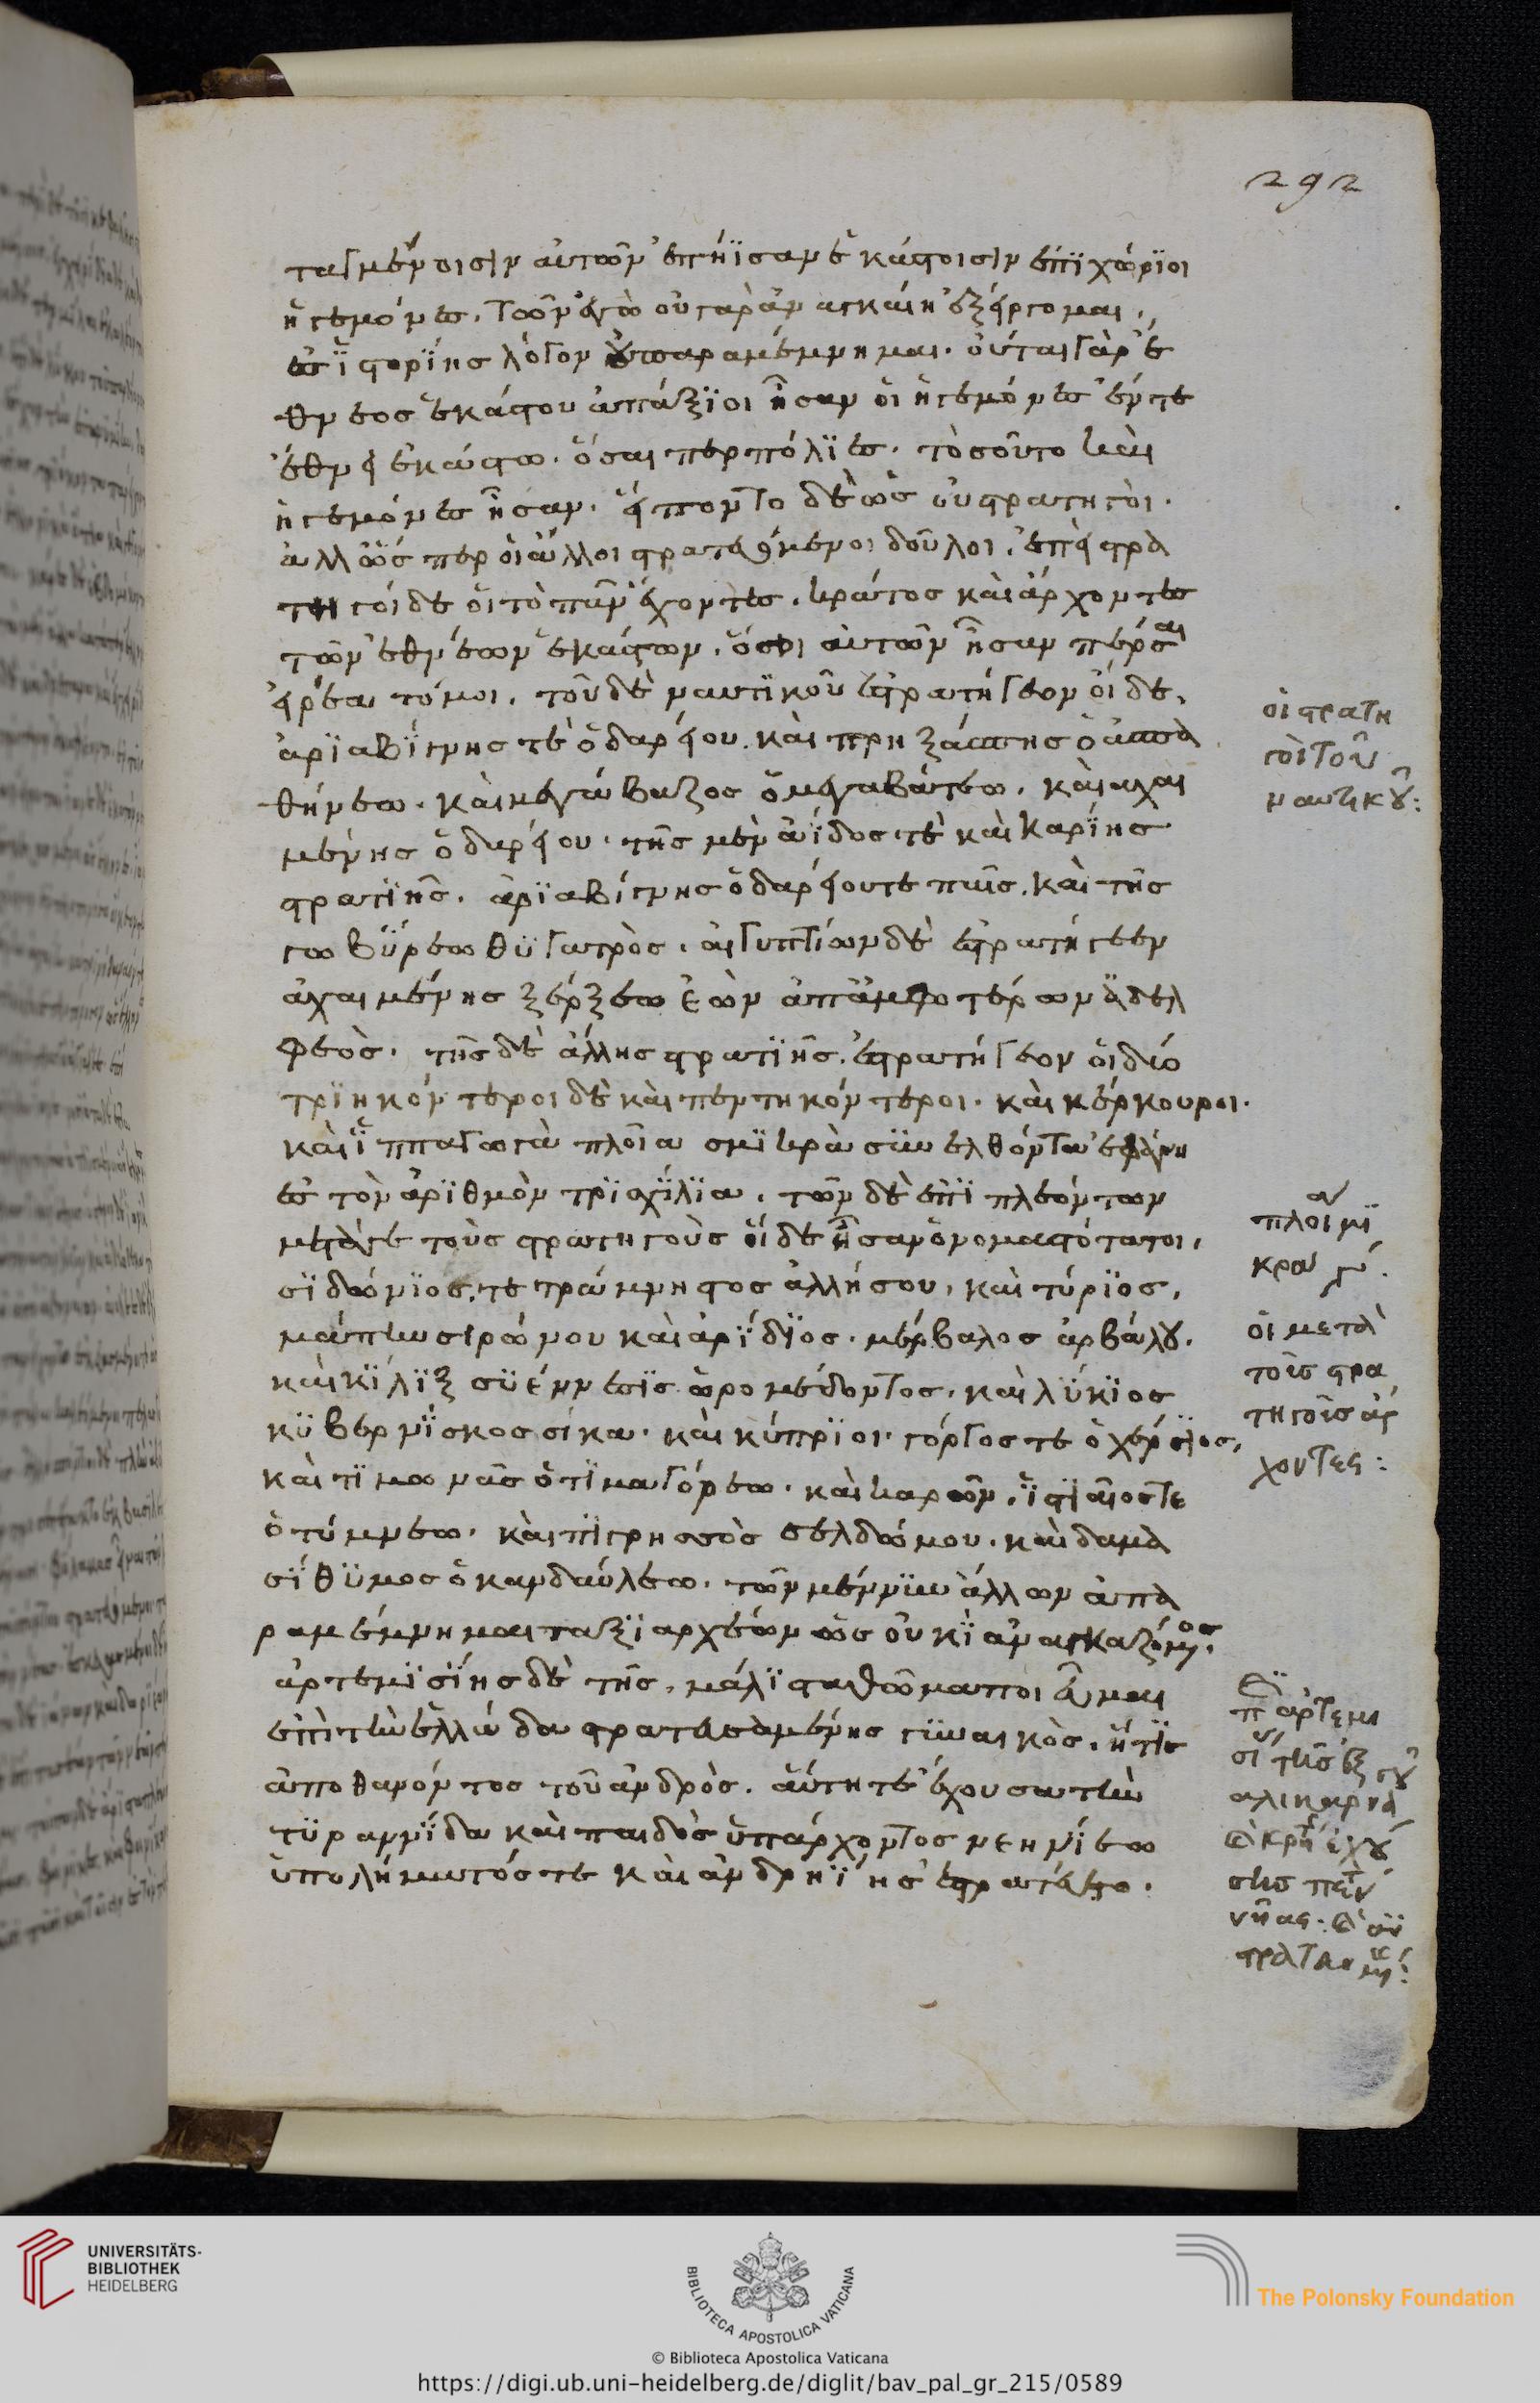 292
ται μένοισιν αὐτῶν ἐπήϊσαν ἑκάστοισιν ἐπιχώριοι
ἡγεμόνες. τῶν ἐγὼ οὐ γὰρ ἀναγκαίη ἐξέργομαι,
ἐς ἱστορίης λόγον οὐ παραμέμνημαι. οὔται γὰρ ἔ
θνεος ἑκάστου ἀπάξιοι ἦσαν οἱ ἡγεμόνες ἔν τε
ἔθνει ἑκάστω. ὅσαι περ πόλιες. τοσοῦτο καὶ
ἡγεμόνες ἦσαν. εἵποντο δὲ ὡς οὐ στρατηγοὶ.
ἀλλ ὥσπερ οἱ ἄλλοι στρατευόμενοι δοῦλοι. ἐπεὶ στρα
τηγοί δε οἱ τὸ πᾶν ἔχοντες. κράτος καὶ ἄρχοντες
τῶν ἐθνέων ἑκάστων. ὅσοι αὐτῶν ἦσαν πέρσαι
εἰρέαται μοι. τοῦ δὲ ναυτικοῦ ἐστρατήγεον οἵδε.
ἀριαβίγνης τὲ ὁ δαρείου. καὶ πρηξάσπης ὁ ἀσπα
θήνεω. καὶ μεγάβαζος ὁ μεγαβάτεω. καὶ αχαι
μένης ὁ δαρείου. τῆς μὲν ἀΐδος τὲ καὶ καρίης
στρατιῆς. ἀριαβίγνης ὁ δαρείου τε παῖς. καὶ τῆς
γωβύρεω θυγατρὸς. αἰγυπτίων δὲ ἐστρατήγεεν
ἀχαιμένης ξέρξεω ἐὼν ἀπ ἀμφοτέρων ἀδελ
φεὸς. τῆς δὲ ἄλλης στρατιῆς. ἐστρατήγεον οἱ δύο
τριηκόντεροι δὲ καὶ πεντηκόντεροι. καὶ κέρκουροι.
καὶ ἱππαγωγὰ πλοῖα σμικρὰ συνελθόντα ἐφάνη
ἐς τὸν ἀριθμὸν τρισχίλια. τῶν δὲ ἐπιπλεόντων
μετά γε τοὺς στρατηγοὺς οἵδε ἦσαν ὀνομαστότατοι,
σιδώνιος, τετράμνηστος ἀλλήσου, καὶ τύριος,
μάπην σιρώμου καὶ ἀρίδιος. μέρβαλος ἀρβάλου.
καὶ κίλιξ συέννεσις ὡρομέδοντος, καὶ λύκιος
κυβερνίσκος σίκα. καὶ κύπριοι. γόργος τε ὁ χέρσιος,
καὶ τιμωνᾶς ὁ τιμαγόρεω. καὶ καρῶν. ἱστιαῖος τε
ὁ τύμνεω. καὶ πίγρης ὁ σελδώμου. καὶ δαμα
σίθυμος ὁ κανδαύλεω. τῶν μέν νυν ἄλλων ἀπα
ραμέμνημαι ταξιαρχέων ὡς οὐκὶ ἀναγκαζόμενος.
ἀρτεμισίης δὲ τῆς. μάλιστα θῶμα ποιεῦμαι
ἐπὶ τὴν ἑλλάδα στρατευσαμένης γυναικὸς. ἥτις
ἀποθανόντος τοῦ ἀνδρὸς. αὕτη τὲ ἔχουσα τὴν
τυραννίδα καὶ παιδὸς ὑπάρχοντος νεηνίεω
ὑπο λήματός τε καὶ ἀνδρηΐης ἐστρατεύετο.
οἱ στρατη
γοὶ τοῦ
ναυτικοῦ:
πλοῖα μι
κρὰ γ.
οἱ μετὰ
τοῖς στρα
τηγοῖς ἄρ
χοντες:
π ἀρτεμι
σί τῆς ἐξ
αλικαρνα